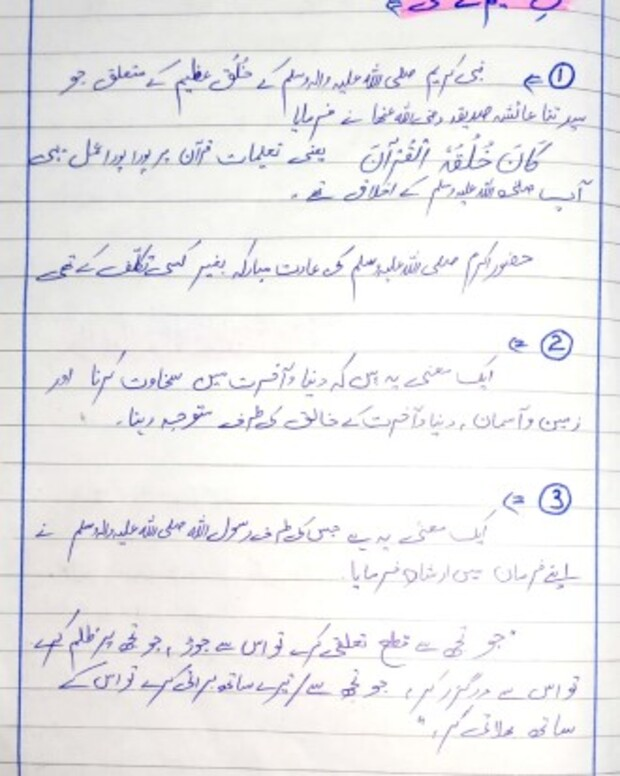 ① ⇐ نبی کریم صلی اللہ علیہ والہ وسلم کے خُلُقِ عظیم کے متعلق جو
سیدتنا عائشہ صدیقہ رضی اللہ عنہا نے فرمایا
كَانَ خُلُقَهُ الْقُرْآنَ یعنی تعلیمات قرآن پر پورا پورا عمل ہی
آپ صلی اللہ علیہ وسلم کے اخلاق تھے۔
حضور اکرم صلی اللہ علیہ وسلم کی عادت مبارکہ بغیر کسی تکلّف کے تھی
② ⇐
ایک معنی یہ ہیں کہ دنیا و آخرت میں سخاوت کرنا اور
زمین و آسمان، دنیا و آخرت کے خالق کی طرف متوجہ رہنا۔
③ ⇐
ایک معنی یہ ہے جس کی طرف رسول اللہ صلی اللہ علیہ والہ وسلم نے
اپنے فرمان میں ارشاد فرمایا۔
"جو تجھ سے قطع تعلقی کرے تو اس سے جوڑ، جو تجھ پر ظلم کرے
تو اس سے درگزر کر، جو تجھ سے/تیرے ساتھ برائی کرے تو اس کے
ساتھ بھلائی کر۔"